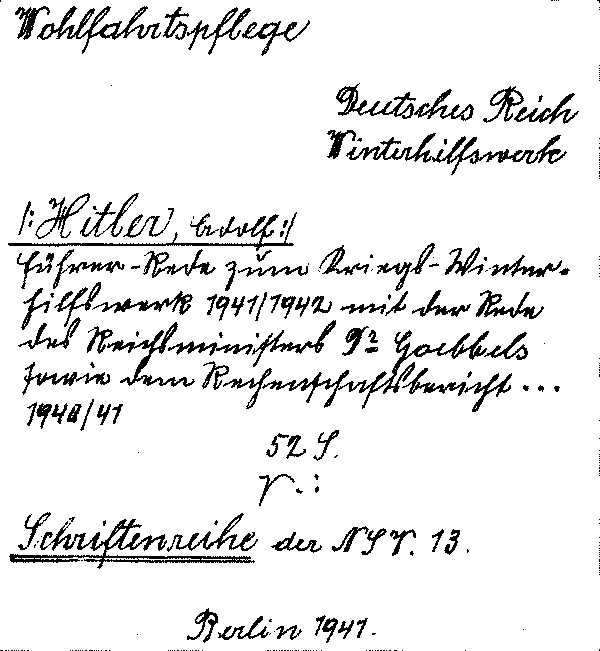 Wohlfahrtspflege
Deutsches Reich
Winterhilfswerk
/: Hitler, Adolf :/
Führer-Rede zum Kriegs-Winter-
hilfswerk 1941/1942 mit der Rede
des Reichsministers Dr Goebbels
sowie dem Rechenschaftsbericht ...
1940/41
52 S.
V.:
Schriftenreihe der NSV. 13.
Berlin 1941.